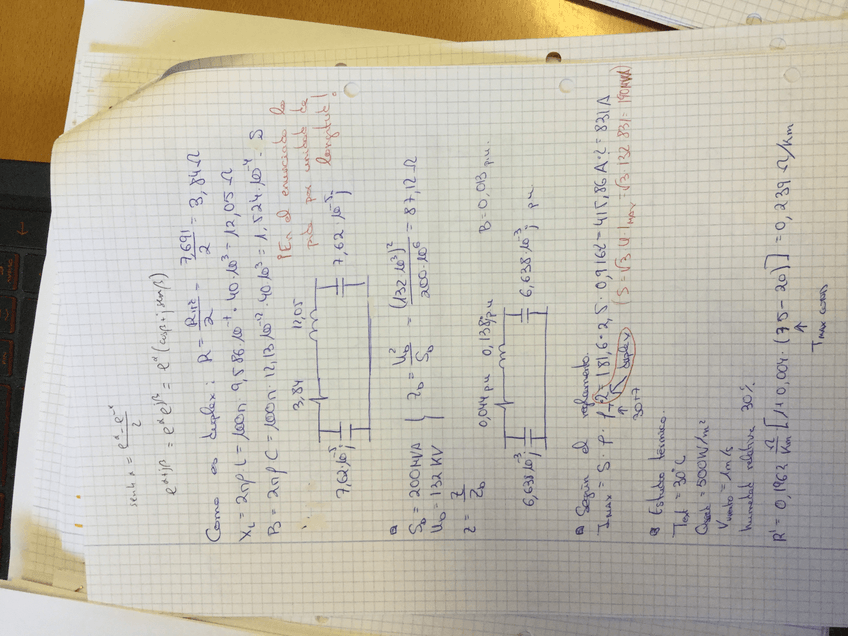 senh x = (e^x - e^-x)/2
e^(α+jβ) = e^α e^jβ = e^α (cosβ + j senβ)
Como es duplex: R = R_75º/2 = 7,691/2 = 3,84 Ω
X_L = 2πf L = 100π · 9,586·10^-4 · 40·10^3 = 12,05 Ω
B = 2πf C = 100π · 12,13·10^-12 · 40·10^3 = 1,524·10^-4 S
¡En el enunciado lo
pide por unidad de
longitud!
3,84 12,05
7,62·10^-5 j 7,62·10^-5 j
S_b = 200 MVA
U_b = 132 KV
Z_b = U_b²/S_b = (132·10³)²/(200·10^6) = 87,12 Ω
z = Z/Z_b
0,044 pu 0,138j pu B = 0,013 p.u.
6,638·10^-3 j 6,638·10^-3 j pu
Según el reglamento
I_MAX = S · ρ · f · 2 = 181,6 · 2,5 · 0,916 = 415,86 A · 2 = 831 A
duplex
30+7
(S = √3 · U · I_MAX = √3 · 132 · 831 = 190 MVA)
Estudio térmico.
T ext = 30°C
= 500 W/m²
V viento = 1 m/s
humedad relativa 30%
R' = 0,1962 Ω/Km [1 + 0,004 · (75 - 20)] = 0,239 Ω/Km
T MAX